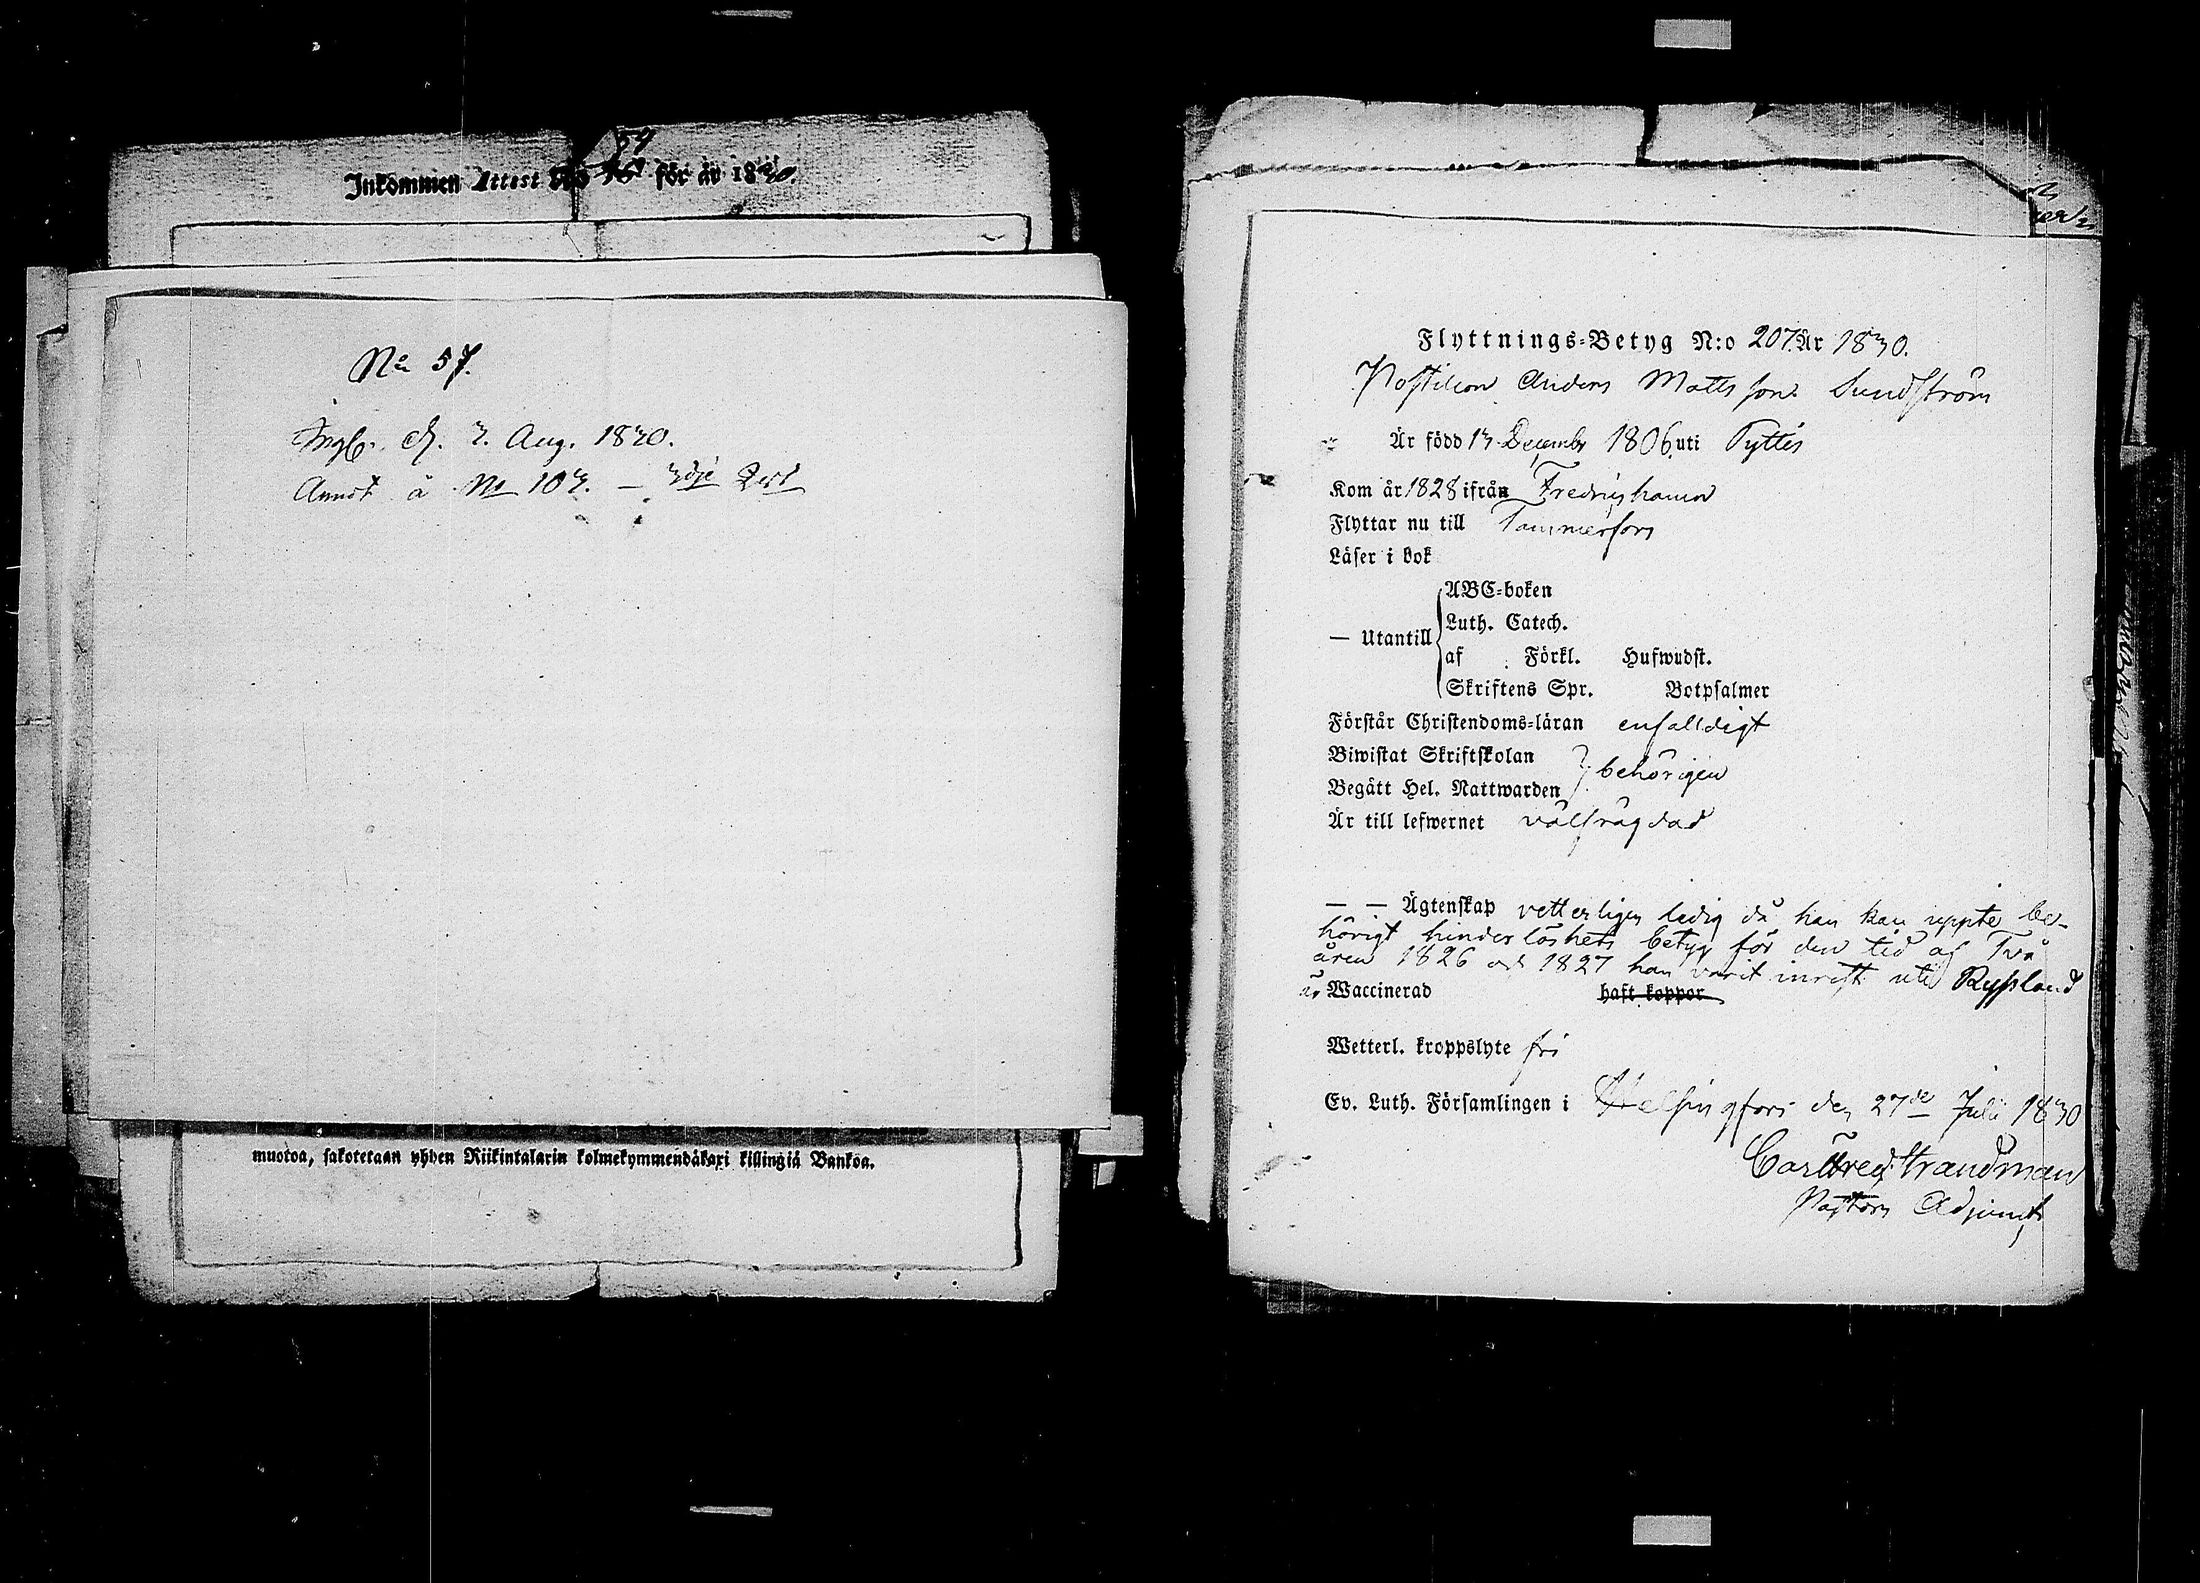 Inkommen Attest No för år 1830.
No 57.
Ingb. d. 3. Aug. 1830.
Annot. å No 103. — 3dje Qvrt
muotoa, sakotetaan yhden Riikintalarin kolmekymmendäkaxi killingiä Bankoa.
Flyttnings-Betyg N:o 207. År 1830.
Postilion Anders Matts son Sundström
Är född 13 Decembr 1806 uti Pyttis
Kom år 1828 ifrån Fredrikshamn
Flyttar nu till Tammerfors
Läser i bok
ABC-boken
Luth. Catech.
— Utantill
af Förkl. Hufwudst.
Skriftens Spr. Botpsalmer
Förstår Christendoms-läran enfalldigt
Biwistat Skriftskolan
} behörigen
Begått Hel. Nattwarden
Är till lefwernet välfrägdad
— — Ägtenskap vetterligen ledig då han kan uppte be-
hörigt hinderlöshets betyg för den tid af Två
åren 1826 och 1827 han varit inrest uti Ryssland
är Waccinerad haft koppor
Wetterl. kroppslyte fri
Ev. Luth. Församlingen i Helsingfors den 27de Julii 1830
Carl Fred. Strandman
Pastors Adjunct